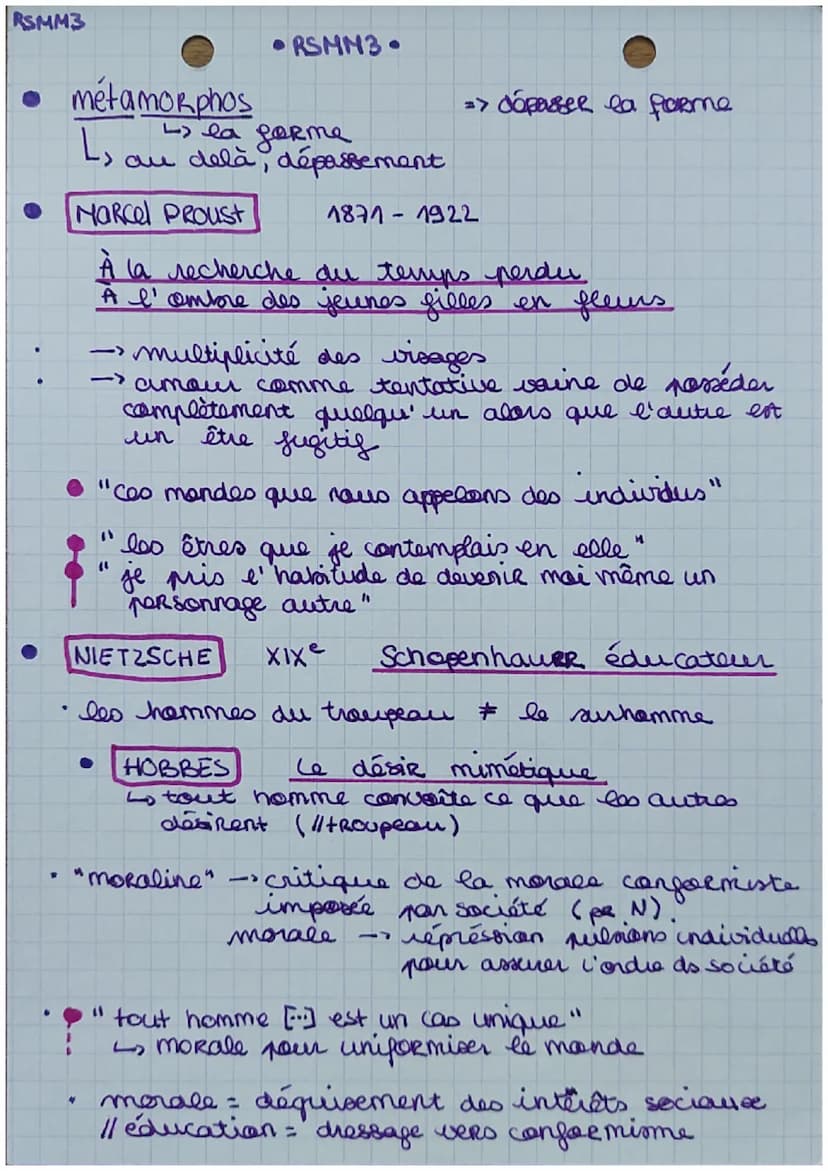 RSMM3
• RSMM3 •
• métamorphos => dépasser la forme
↳ la forme
↳ au delà, dépassement
• MARCEL PROUST 1871 - 1922
À la recherche du temps perdu
À l'ombre des jeunes filles en fleurs
→ multiplicité des visages
→ amour comme tentative vaine de posséder
complètement quelqu'un alors que l'autre est
un être fugitif
• "ces mondes que nous appelons des individus"
"les êtres que je contemplais en elle"
"je pris l'habitude de devenir moi même un
personnage autre"
• NIETZSCHE XIXe Schopenhauer éducateur
• les hommes du troupeau ≠ le surhomme
• HOBBES Le désir mimétique
↳ tout homme convoite ce que les autres
désirent (//troupeau)
• "moraline" → critique de la morale conformiste
imposée par société (pr N).
morale → répression pulsions individuelles
pour assurer l'ordre ds société
• "tout homme [...] est un cas unique"
↳ morale pour uniformiser le monde
• morale = déguisement des intérêts sociaux
// éducation = dressage vers conformisme